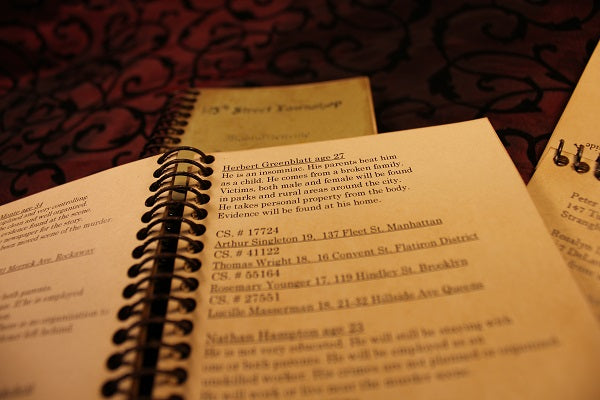 Monte age 34
and very controlling
be clean and well organized
evidence found at the scene.
newspaper for the story.
been moved scene of the murder.
Merrick Ave, Rockaway
both parents.
If he is employed
there is no organization to
left behind
75th Street Townshop
Herbert Greenblatt age 27
He is an insomniac. His parents beat him
as a child. He comes from a broken family.
Victims, both male and female will be found
in parks and rural areas around the city.
He takes personal property from the body.
Evidence will be found at his home.
CS. # 17724
Arthur Singleton 19, 137 Fleet St. Manhattan
CS. # 41122
Thomas Wright 18, 16 Convent St. Flatiron District
CS. # 55164
Rosemary Younger 17, 119 Hindley St. Brooklyn
CS. # 27551
Lucille Masserman 18, 21-32 Hillside Ave Queens
Nathan Hampton age 23
He is not very educated. He will still be staying with
one or both parents. He will be employed as an
unskilled worker. His crimes are not planned or organized
He will work or live near the murder scene.
Peter
147 Tu
Strangl
Rosalyn